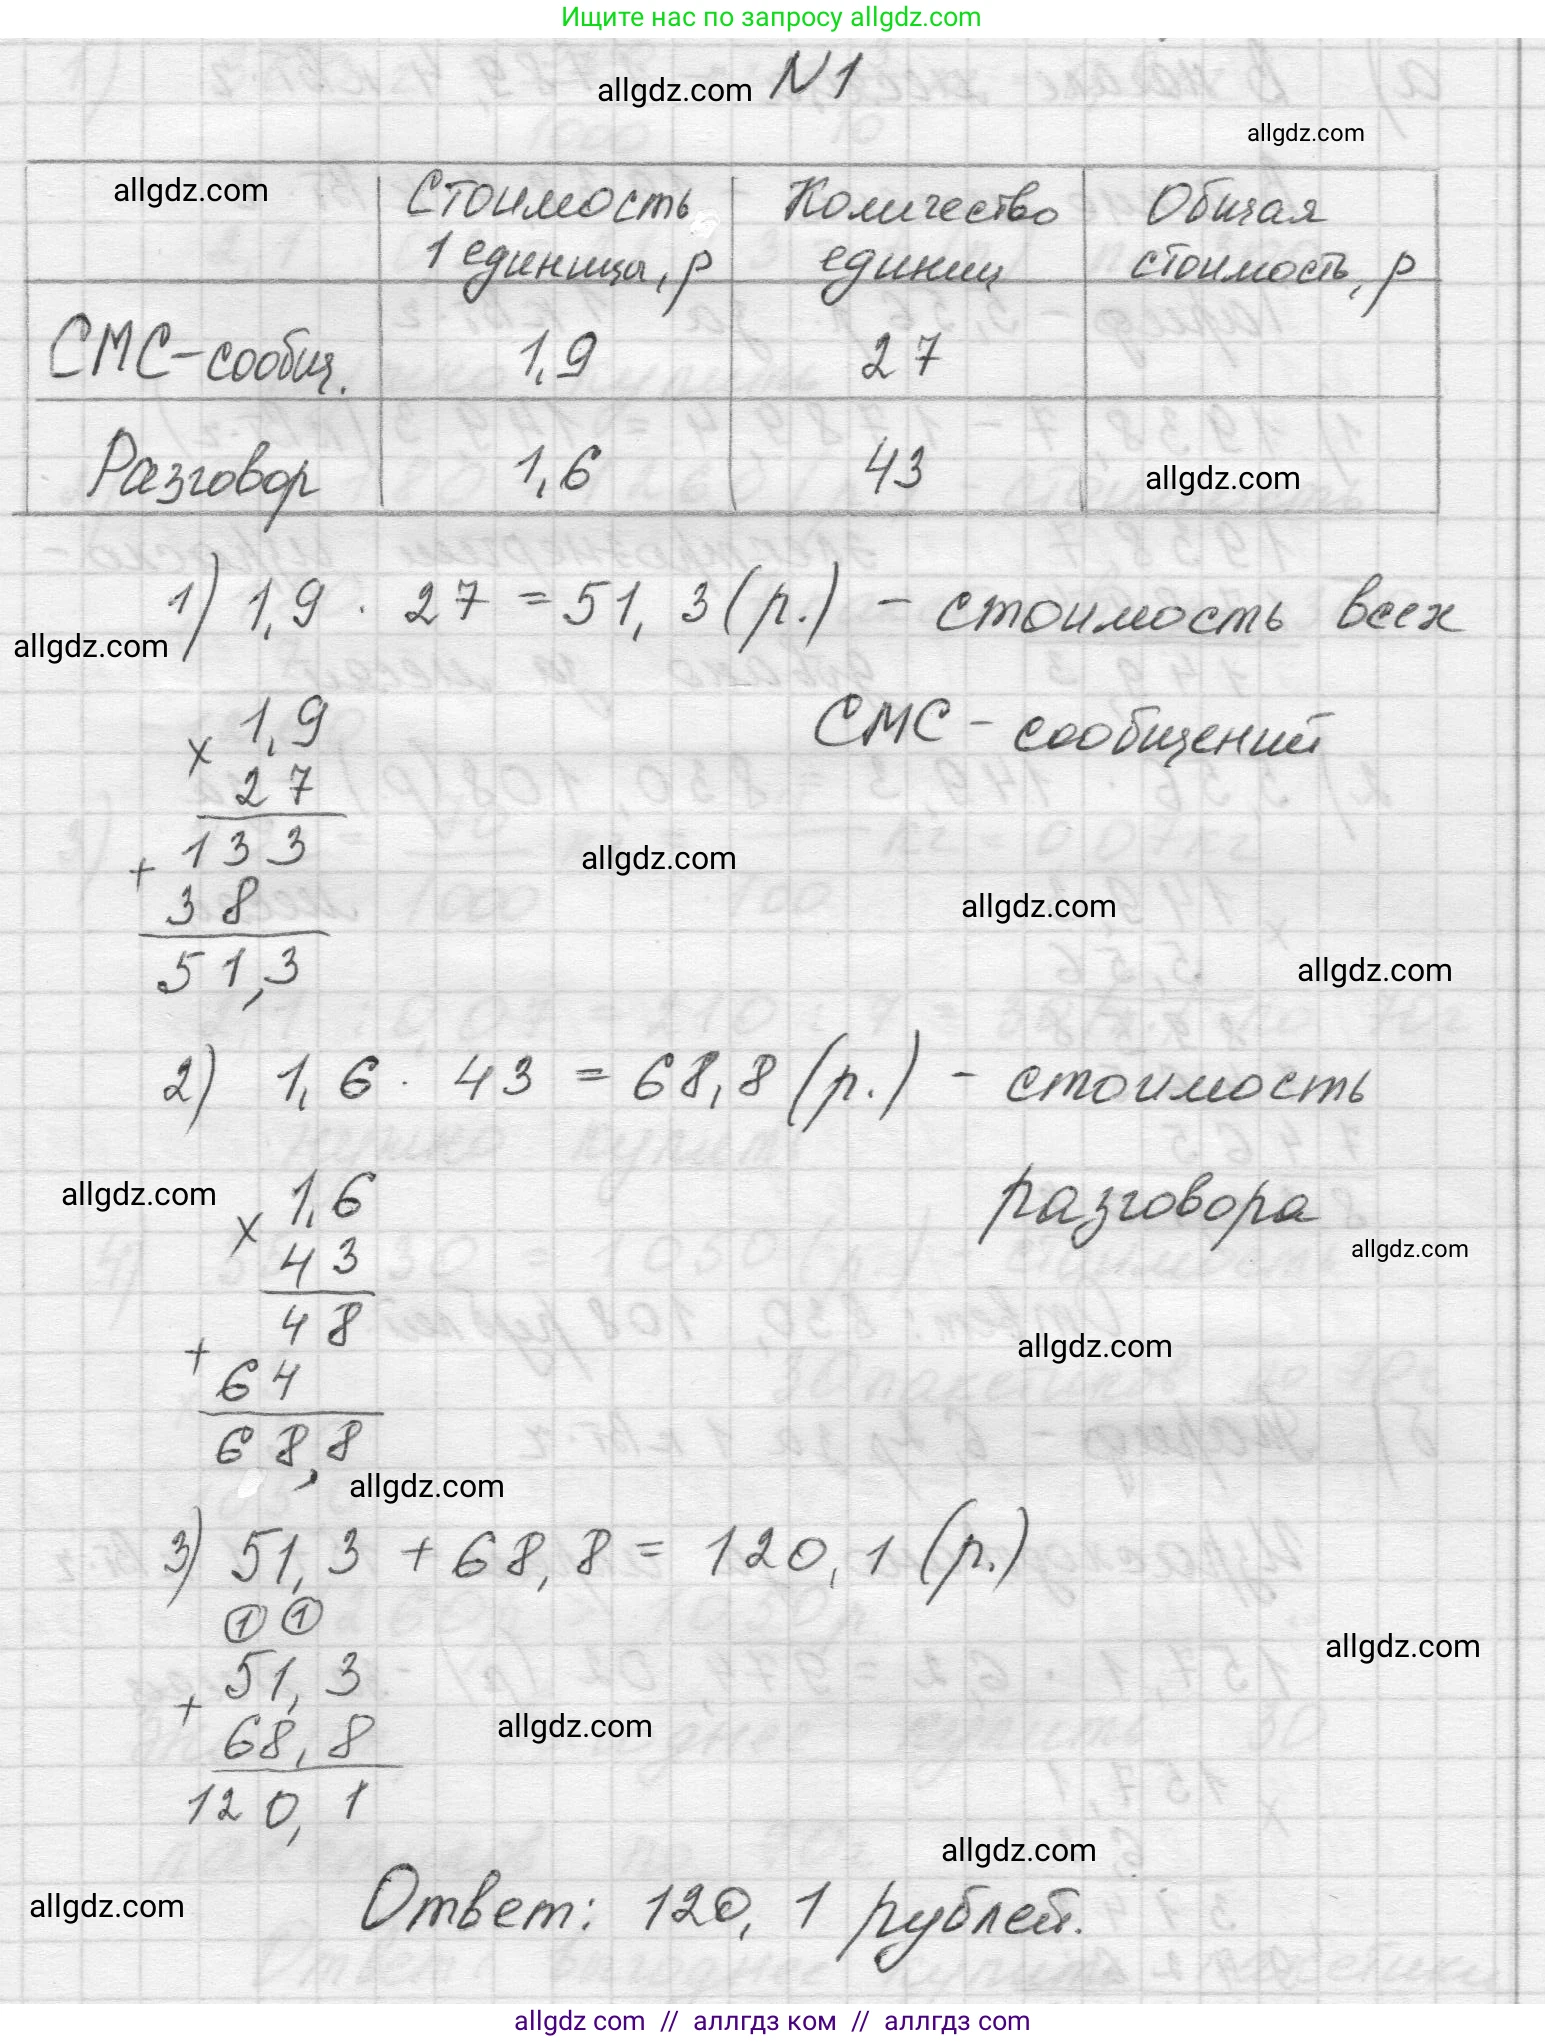 Ищите нас по запросу allgdz.com
allgdz.com N1
allgdz.com
allgdz.com Стоимость 1 единицы, р Количество единиц Общая стоимость, р
СМС-сообщ. 1,9 27
Разговор 1,6 43 allgdz.com
1) 1,9 · 27 = 51,3 (р.) - стоимость всех
allgdz.com
СМС-сообщений
× 1,9
27
+ 133
allgdz.com
38
allgdz.com
51,3
allgdz.com
2) 1,6 · 43 = 68,8 (р.) - стоимость
разговора
allgdz.com
× 1,6
43
allgdz.com
+ 48
allgdz.com
64
68,8
allgdz.com
3) 51,3 + 68,8 = 120,1 (р.)
1 1
allgdz.com
+ 51,3
68,8
allgdz.com
120,1
allgdz.com
allgdz.com
Ответ: 120,1 рублей.
allgdz.com // аллгдз ком // аллгдз com